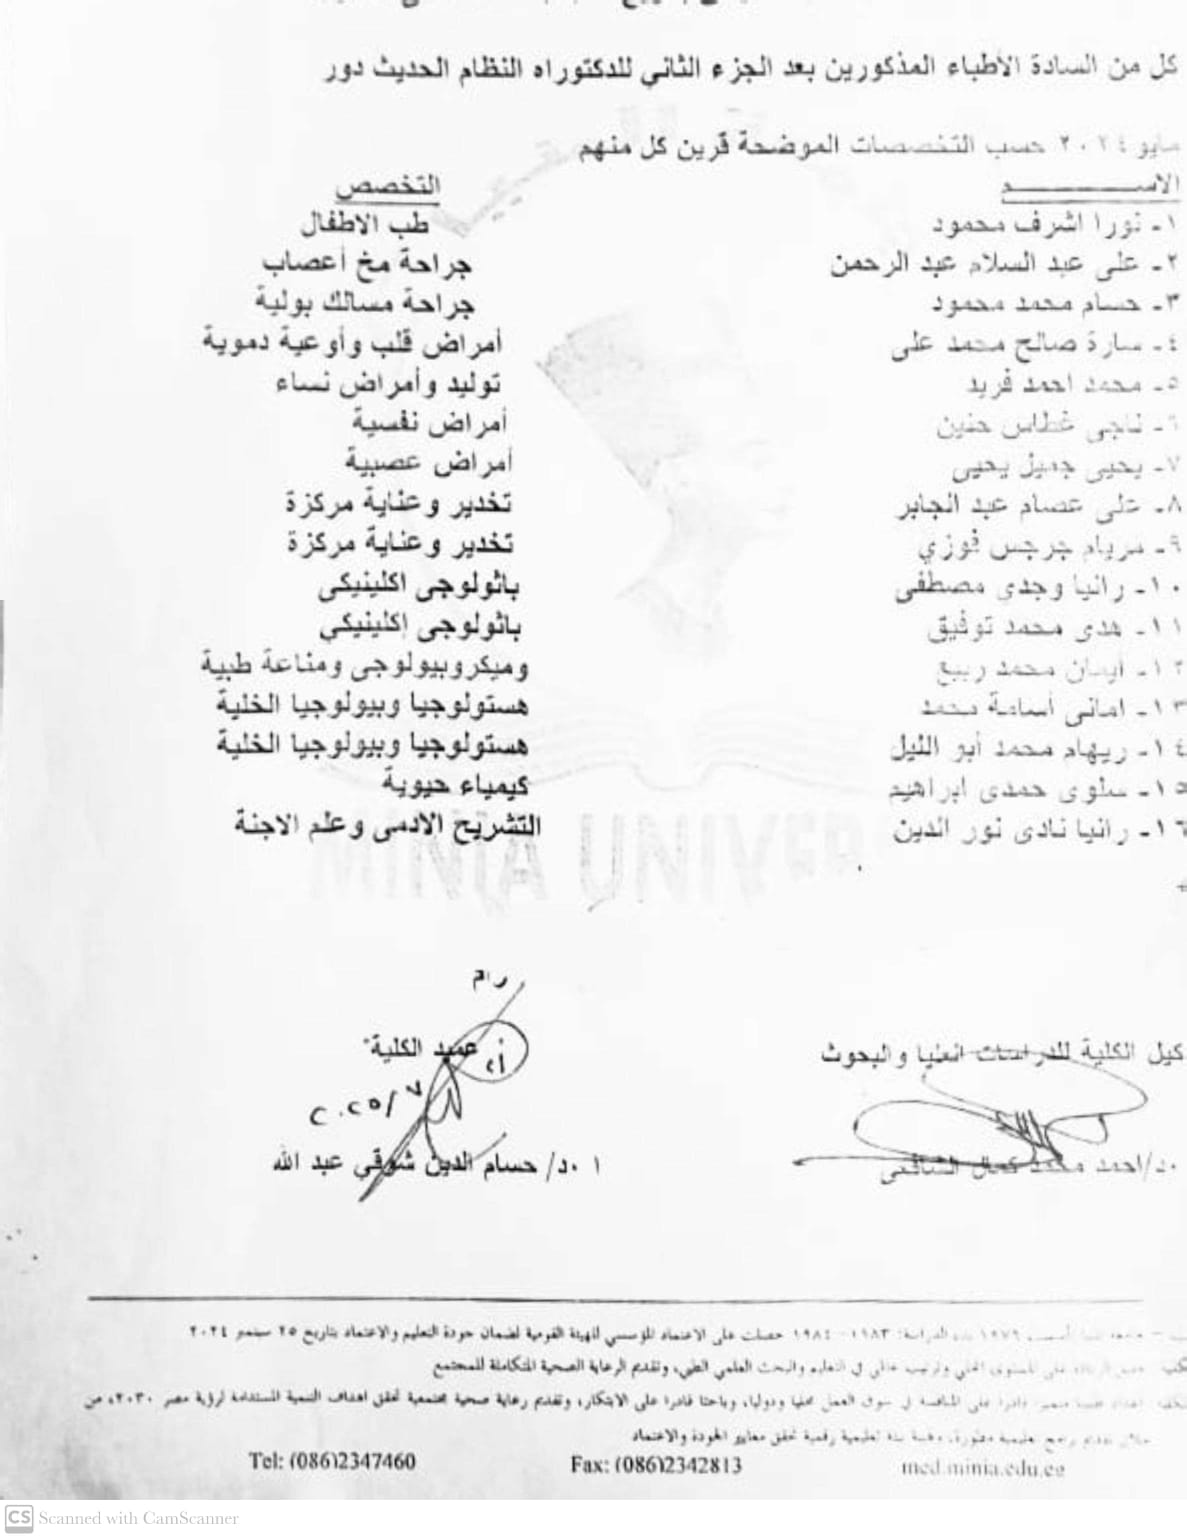 كل من السادة الأطباء المذكورين بعد الجزء الثاني للدكتوراه النظام الحديث دور
مايو ٢٠٢٤ حسب التخصصات الموضحة قرين كل منهم
الاســـــــم التخصص
١- نورا اشرف محمود طب الاطفال
٢- على عبد السلام عبد الرحمن جراحة مخ أعصاب
٣- حسام محمد محمود جراحة مسالك بولية
٤- سارة صالح محمد على أمراض قلب وأوعية دموية
٥- محمد احمد فريد توليد وأمراض نساء
٦- ناجى غطاس حنين أمراض نفسية
٧- يحيى جميل يحيى أمراض عصبية
٨- على عصام عبد الجابر تخدير وعناية مركزة
٩- مريام جرجس فوزي تخدير وعناية مركزة
١٠- رانيا وجدى مصطفى باثولوجى اكلينيكى
١١- هدى محمد توفيق باثولوجى إكلينيكي
١٢- ايمان محمد ربيع وميكروبيولوجى ومناعة طبية
١٣- امانى أسامة محمد هستولوجيا وبيولوجيا الخلية
١٤- ريهام محمد أبو الليل هستولوجيا وبيولوجيا الخلية
١٥- سلوى حمدى ابراهيم كيمياء حيوية
١٦- رانيا نادى نور الدين التشريح الادمى وعلم الاجنة
MINIA UNIVER
كيل الكلية للدراسات العليا والبحوث عميد الكلية
٢٠٢٥/٧
د/احمد محمد كمال الشافعى ا.د/ حسام الدين شوقي عبد الله
١٩٧٦ بدء الدراسة: ١٩٨٣- ١٩٨٤ حصلت على الاعتماد المؤسسي للهيئة القومية لضمان جودة التعليم والاعتماد بتاريخ ٢٥ سبتمبر ٢٠٢٤
على المستوى المحلي وترتيب عالمي في التعليم والبحث العلمي الطبي، وتقديم الرعاية الصحية المتكاملة للمجتمع
قادرا على المنافسة في سوق العمل محليا ودوليا، وباحثا قادرا على الابتكار، وتقديم رعاية صحية مجتمعية تحقق اهداف التنمية المستدامة لرؤية مصر ٢٠٣٠، من
خلال تقديم برامج تعليمية متطورة، وبيئة تعليمية رقمية تحقق معايير الجودة والاعتماد
Tel: (086)2347460 Fax: (086)2342813 med.minia.edu.eg
CS Scanned with CamScanner